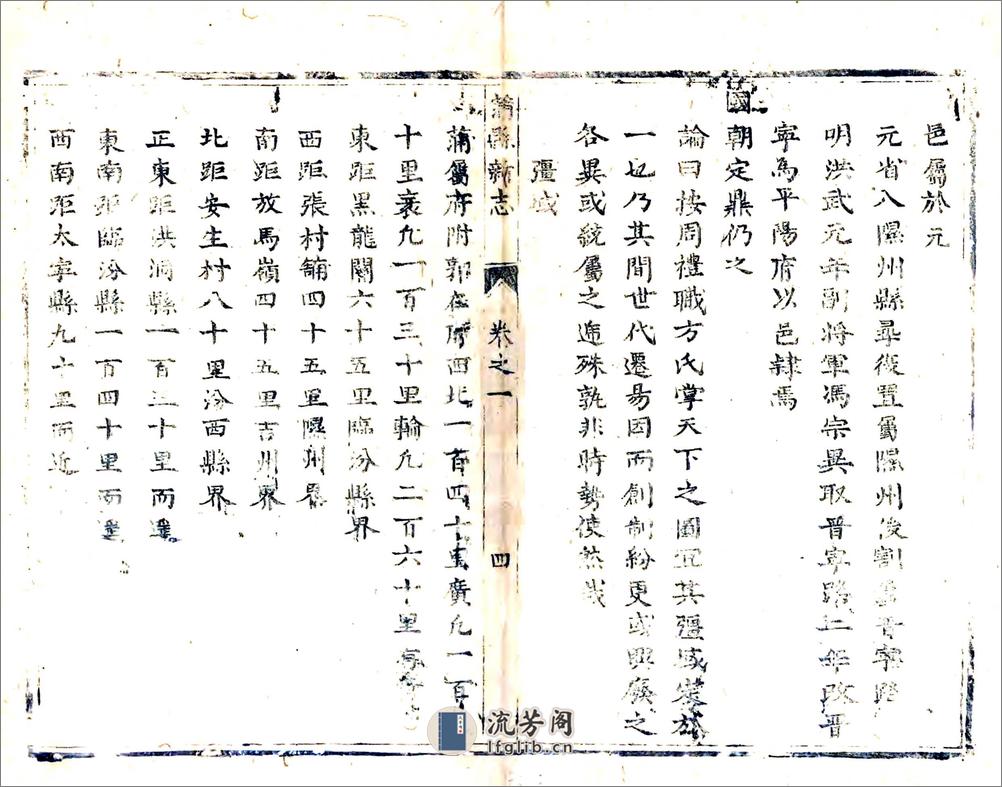 邑屬於元
元省入隰州縣尋復置屬隰州後割屬晉寧路
明洪武元年副將軍馮宗異取晉寧路二年改晉
寧爲平陽府以邑隸焉
國朝定鼎仍之
論曰按周禮職方氏掌天下之圖宜其疆域
一也乃其間世代遷易因而創制紛更或興廢之
各異或統屬之逓殊孰非時勢使然哉
疆域
蒲縣新志 卷之一 四
蒲屬府附郭在府西北一百四十里廣九一百
十里袤九一百三十里輪九二百六十里
東距黑龍關六十五里臨汾縣界
西距張村鋪四十五里隰州界
南距放馬嶺四十五里吉州界
北距安生村八十里汾西縣界
正東距洪洞縣一百三十里而遥
東南距臨汾縣一百四十里而遥
西南距大寧縣九十里而近
流芳阁
lfglib.cn